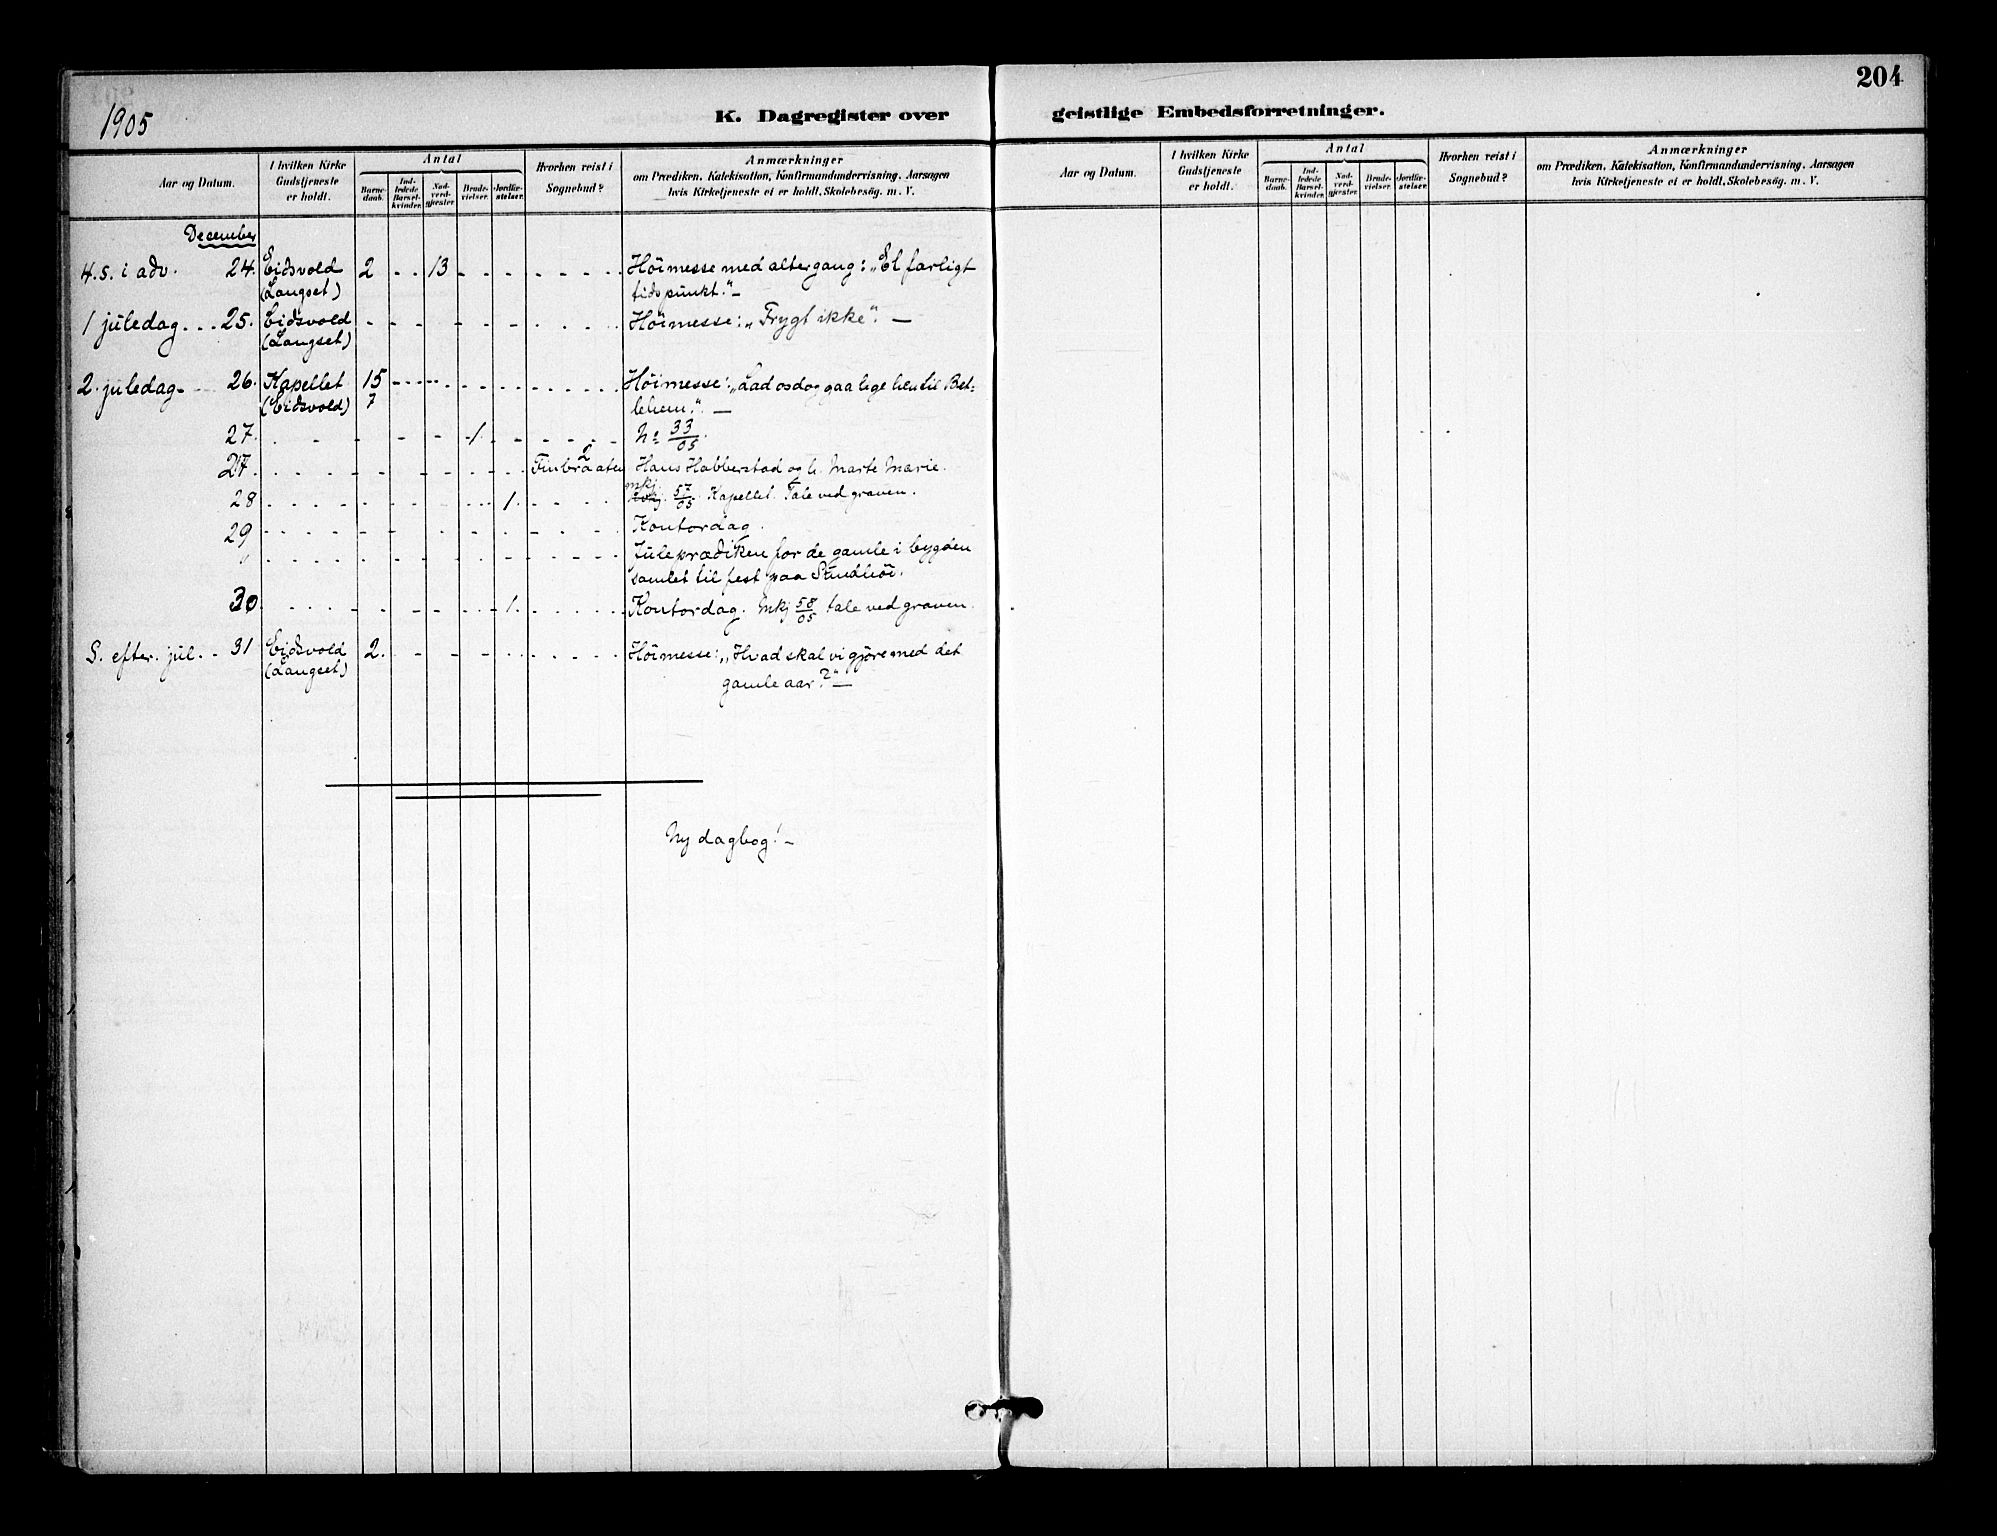 204
1905
K. Dagregister over geistlige Embedsforretninger.
Aar og Datum.
I hvilken Kirke Gudstjeneste er holdt.
Antal
Barne-daab.
Ind-ledede Barsel-kvinder.
Nad-verd-gjæster.
Brude-vielser.
Jordfæ-stelser.
Hvorhen reist i Sognebud?
Anmærkninger
om Prædiken, Katekisation, Konfirmandundervisning, Aarsagen
hvis Kirketjeneste ei er holdt, Skolebesøg. m. V.
December
4. s. i adv. 24. Eidsvold 2 13 Höimesse med altergang: „Et farligt
(Langset) tidspunkt.“
1 juledag 25. Eidsvold Höimesse: „Frygt ikke“.
(Langset)
2. juledag 26. Kapellet 15 Höimesse: „Lad os dog gaa lige hen til Bet-
(Eidsvold) 7 lehem.“
27. 1 N: 33/05
2
27. Finbraaten Hans Habberstad og h. Marte Marie.
mkj.
28 1. 57/05 Kapellet. Tale ved graven.
29 Kontordag.
" Juleprædiken for de gamle i bygden
samlet til fest paa
30. 1. Kontordag. Mkj 58/05 tale ved graven.
S. efter jul. 31 Eidsvold 2. Höimesse: „Hvad skal vi gjøre med det
(Langset) gamle aar?“
Ny dagbog!
Aar og Datum.
I hvilken Kirke Gudstjeneste er holdt.
Antal
Barne-daab.
Ind-ledede Barsel-kvinder.
Nad-verd-gjæster.
Brude-vielser.
Jordfæ-stelser.
Hvorhen reist i Sognebud?
Anmærkninger
om Prædiken, Katekisation, Konfirmandundervisning, Aarsagen
hvis Kirketjeneste ei er holdt, Skolebesøg. m. V.